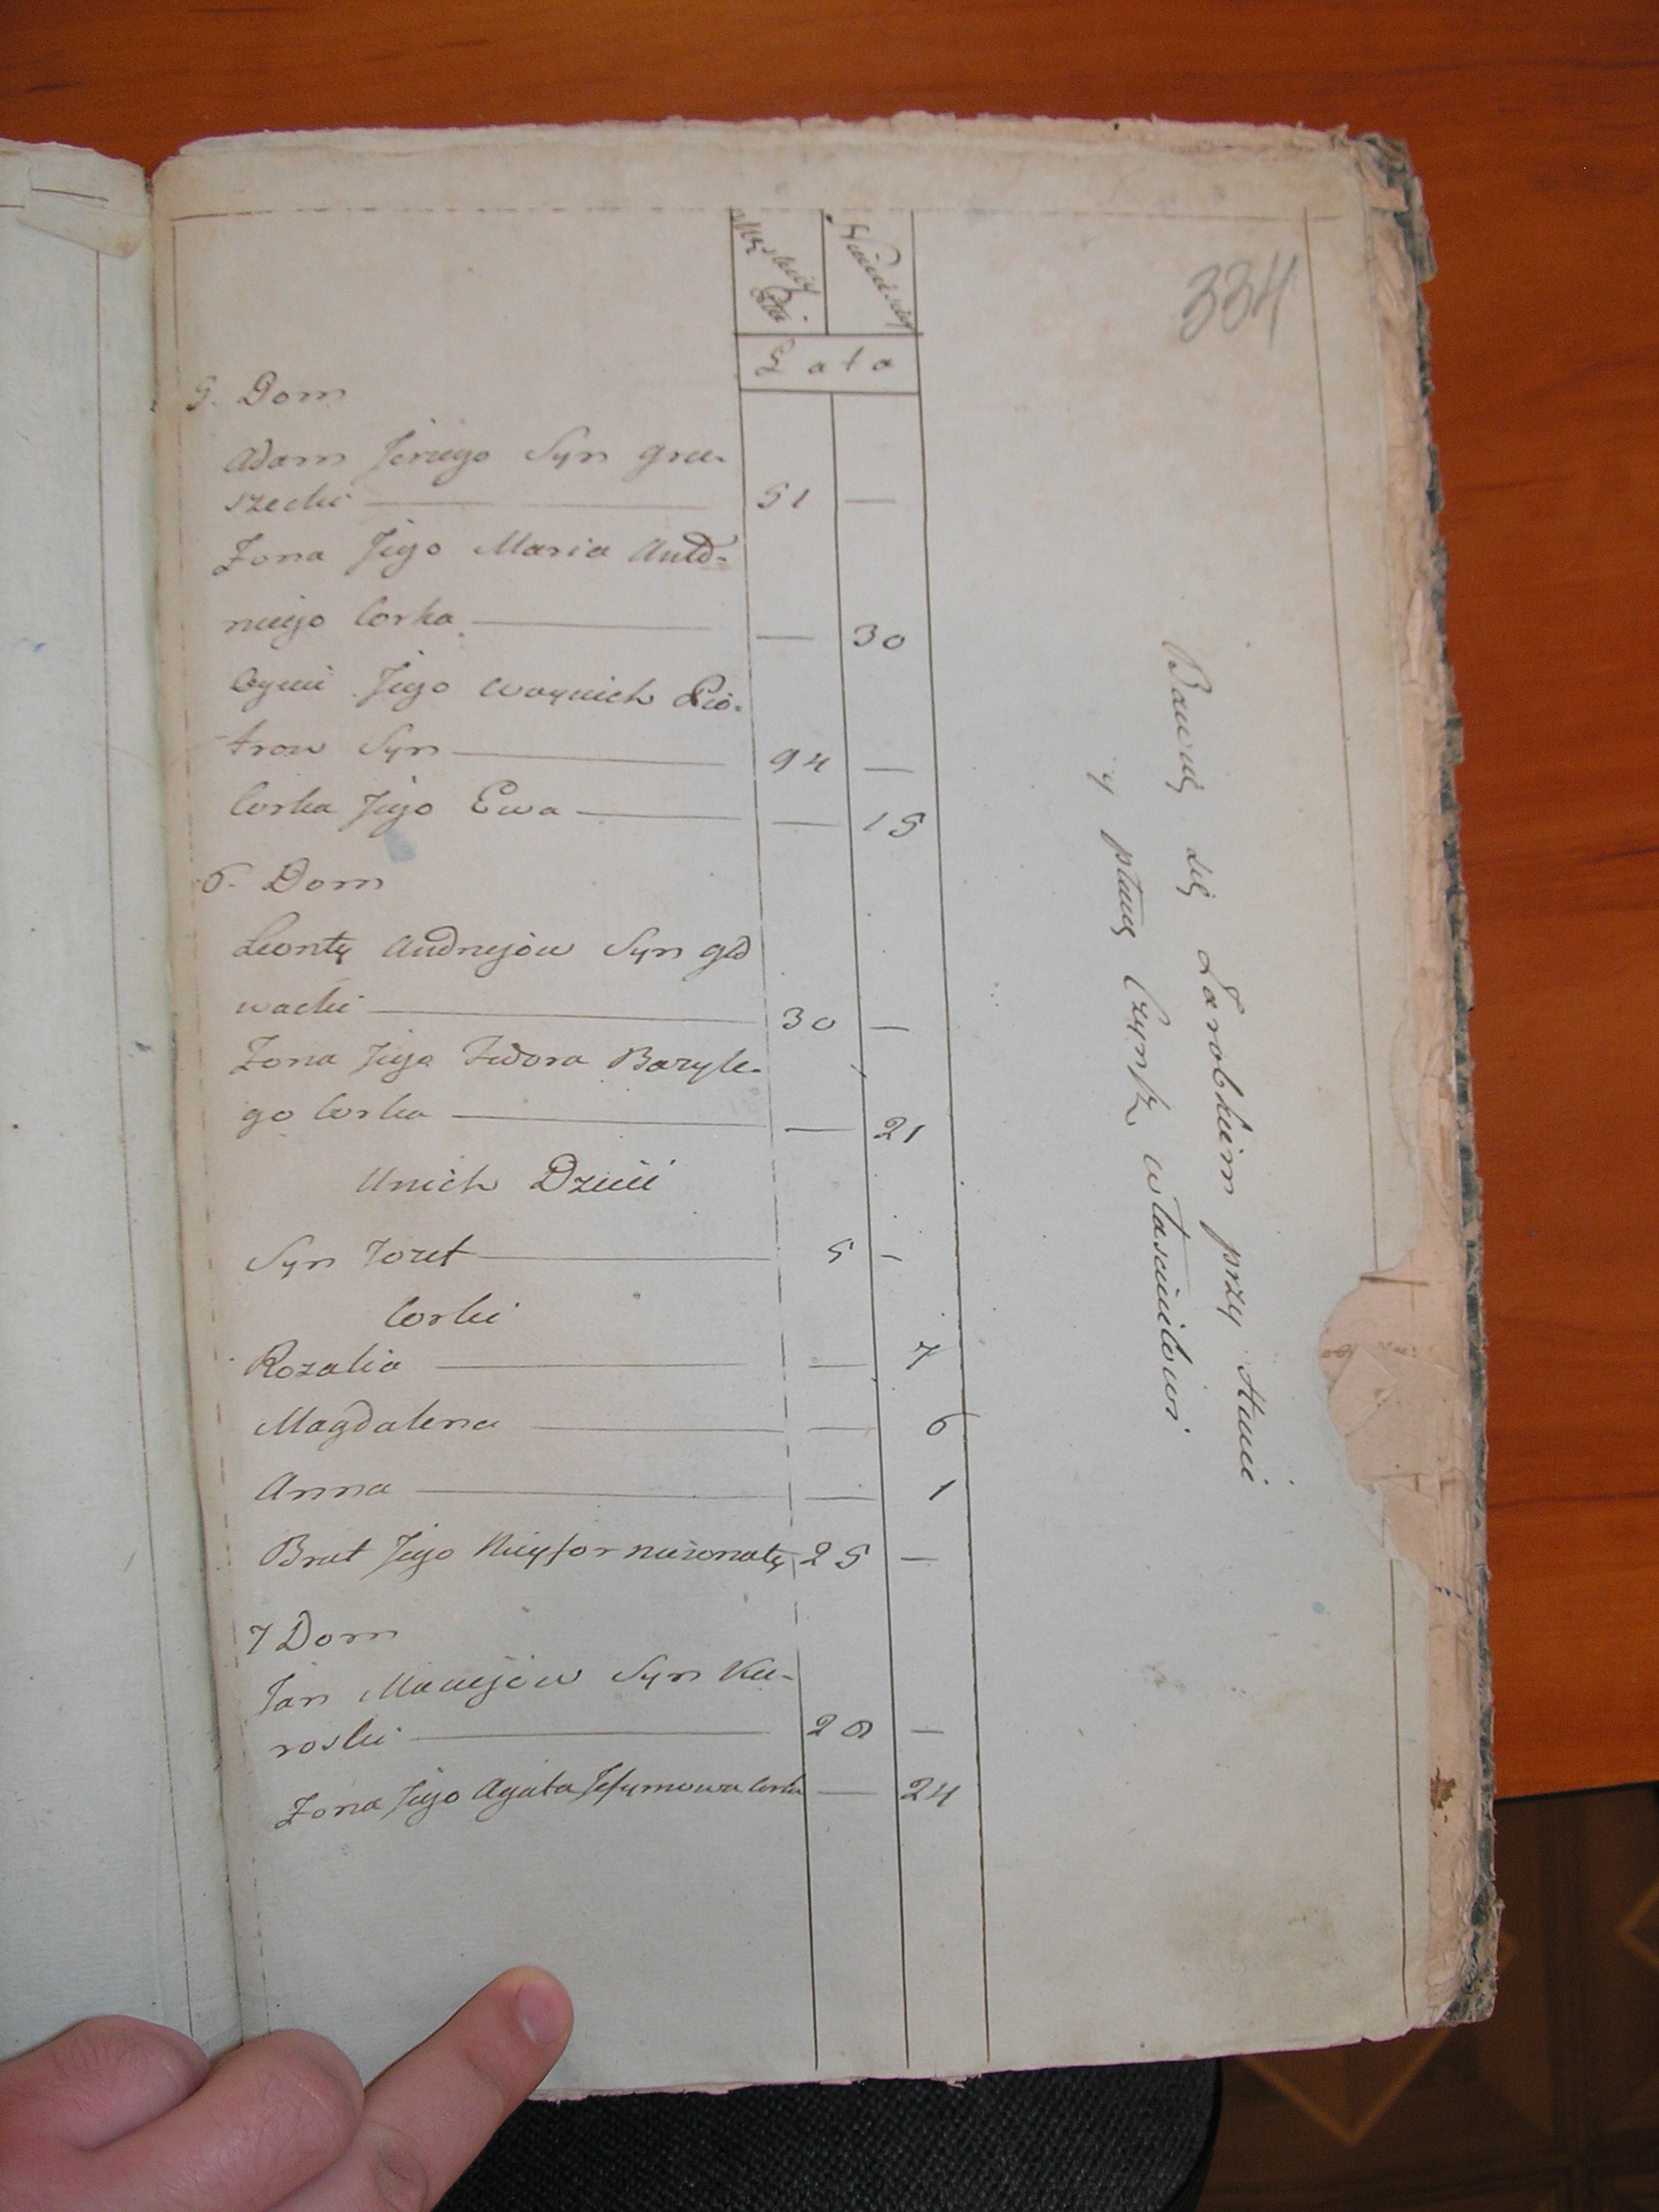 334
Męskiey Płci
Niewieściey
Lata
5. Dom
Adam Jerzego Syn Gru-
szecki — 51 —
Zona Jego Maria Anto-
niego Corka — — 30
Oyciec Jego Woyciech Pio-
trow Syn — 94 —
Corka Jego Ewa — — 15
6. Dom
Leonty Andrzejow Syn Gło
wacki — 30 —
Zona Jego Fedora Bazyle-
go Corka — — 21
Unich Dzieci
Syn Jozef — 5 —
Corki
Rozalia — — 7
Magdalena — — 6
Anna — — 1
Brat Jego Nieżonaty 25 —
7 Dom
Jan Maciejow Syn Ku-
roski — 28 —
Zona Jego Agata Jefymowa Corka — 24
Bawią się Zarobkiem przy Stanci
y płacą Czynsz właścicielowi